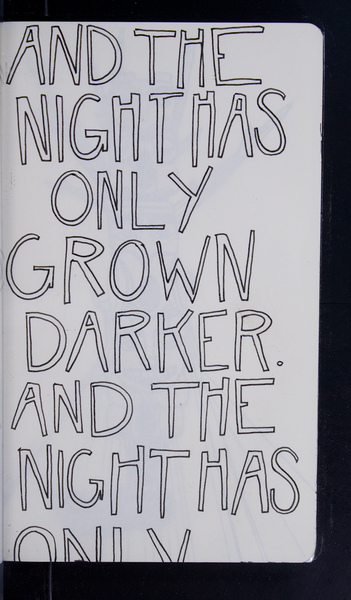 AND THE
NIGHT HAS
ONLY
GROWN
DARKER.
AND THE
NIGHT HAS
ONLY